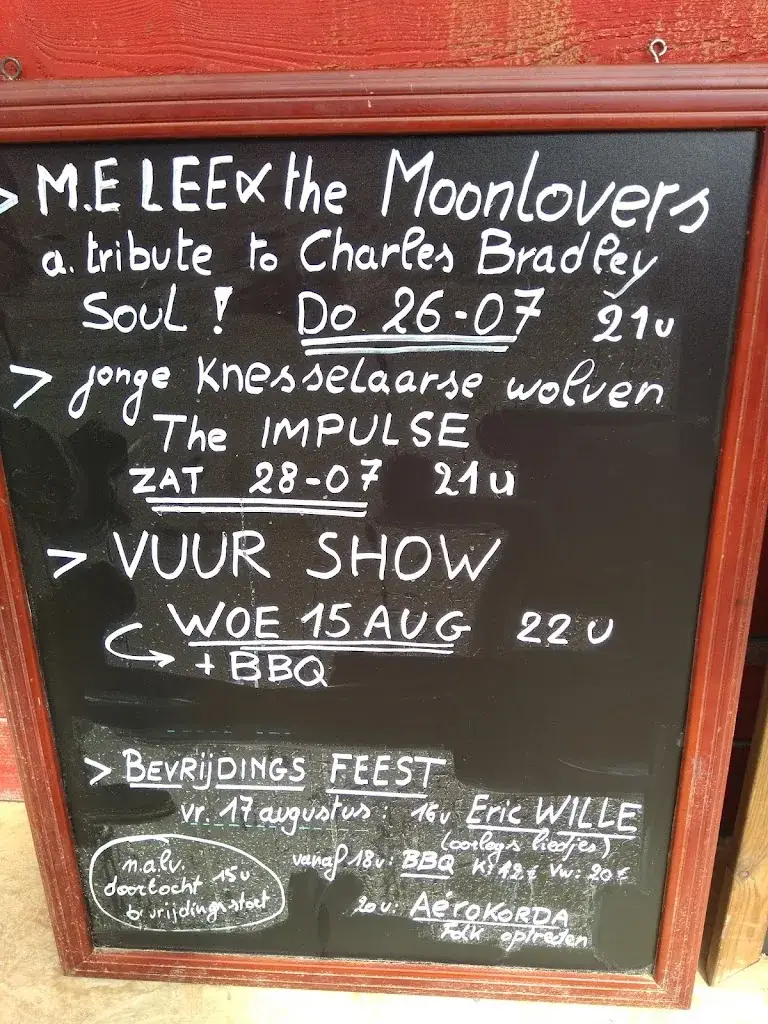 > M.E LEE & the Moonlovers
a. tribute to Charles Bradley
SOUL! Do 26-07 21u
> jonge Knesselaarse wolven
The IMPULSE
ZAT 28-07 21u
> VUUR SHOW
WOE 15 AUG 22u
+ BBQ
> BEVRIJDINGS FEEST
vr. 17 augustus: 16u Eric WILLE
(oorlogs liedjes)
vanaf 18u: BBQ K: 12€ Vw: 20€
n.a.v.
doortocht 15u
bevrijdingsstoet
20u: AéroKORDA
Folk optreden